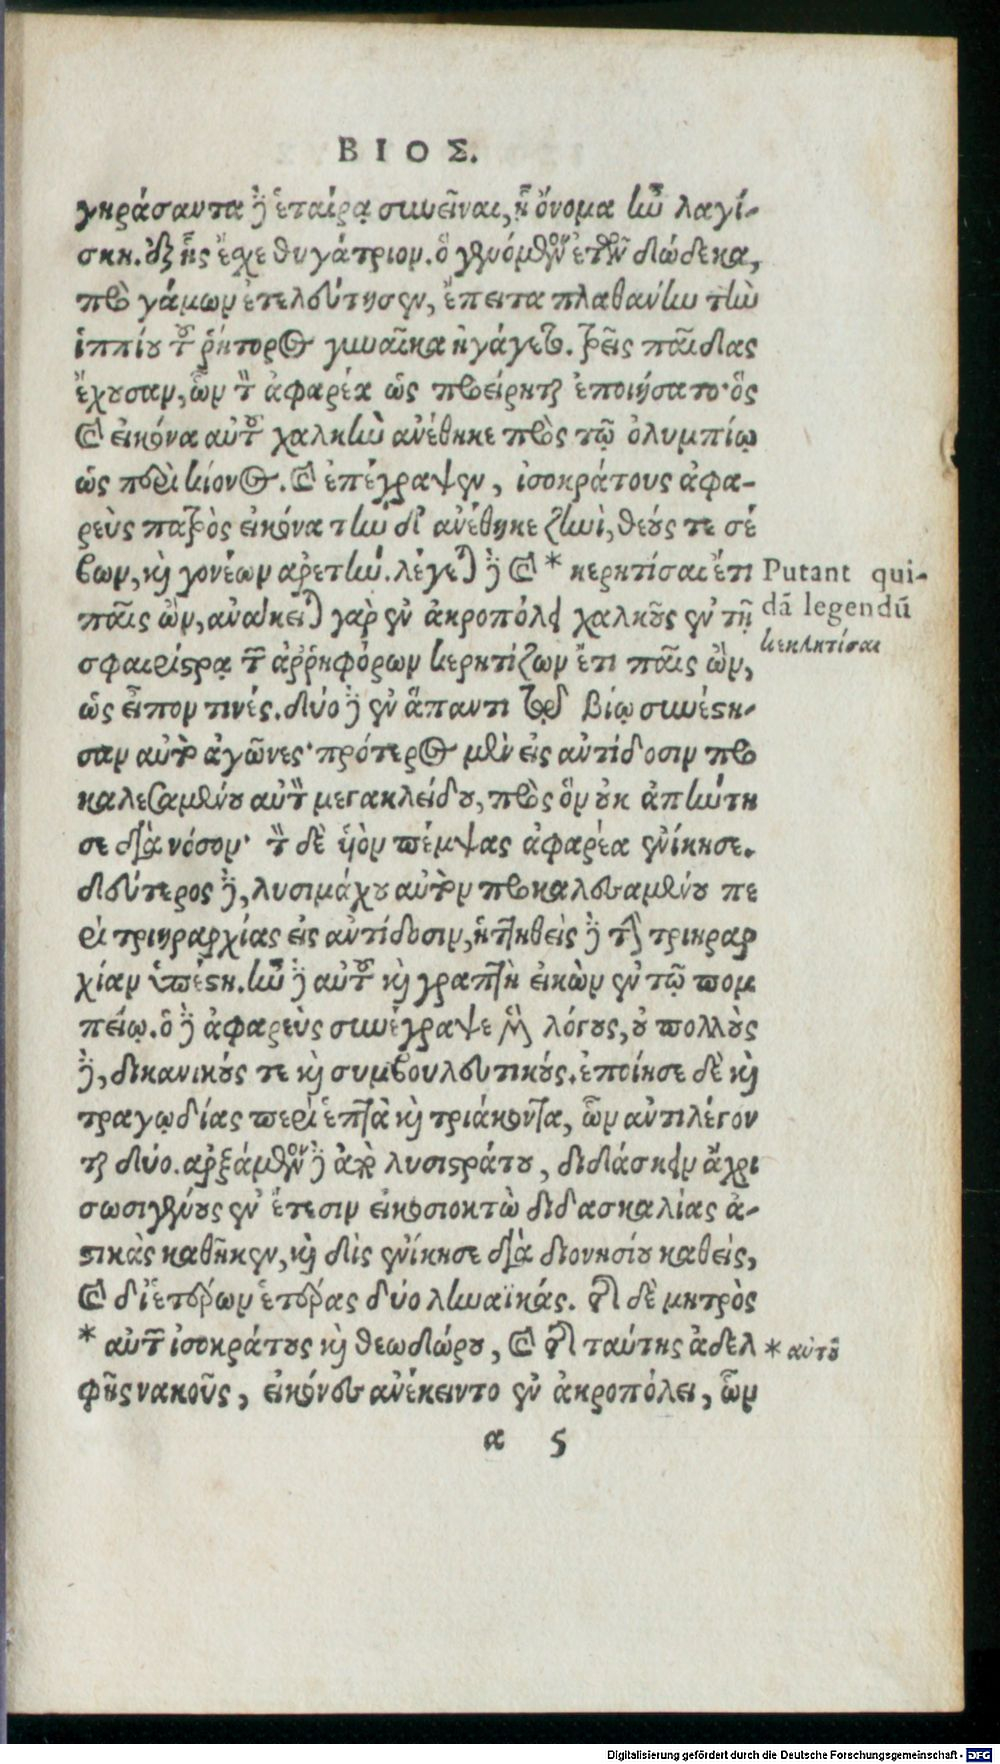 ΒΙΟΣ.
γηράσαντα δὲ ἑταίρᾳ συνεῖναι, ᾗ ὄνομα ἦν λαγί-
σκη. ἐξ ἧς ἔσχε θυγάτριον. ὃ γενόμενον ἐτῶν δώδεκα,
πρὸ γάμων ἐτελεύτησεν, ἔπειτα πλαθάνην τὴν
ἱππίου τοῦ ῥήτορος γυναῖκα ἠγάγετο. τρεῖς παῖδας
ἔχουσαν, ὧν τὸν ἀφαρέα ὡς προείρηται ἐποιήσατο· ὃς
καὶ εἰκόνα αὐτοῦ χαλκῆν ἀνέθηκε πρὸς τῷ ὀλυμπίῳ
ὡς περὶ κίονος. καὶ ἐπέγραψεν, ἰσοκράτους ἀφα-
ρεὺς πατρὸς εἰκόνα τὴν δ᾽ ἀνέθηκε ζηνὶ, θεούς τε σέ
βων, καὶ γονέων ἀρετήν. λέγεται δὲ καὶ * κερητίσαι ἔτι
παῖς ὢν, ἀνάκειται γὰρ ἐν ἀκροπόλει χαλκοῦς ἐν τῇ
σφαιρίστρᾳ τῶν ἀῤῥηφόρων κερητίζων ἔτι παῖς ὢν,
ὡς εἶπον τινές. δύο δὲ ἐν ἅπαντι τῷ βίῳ συνέστη-
σαν αὐτῷ ἀγῶνες· πρότερος μὲν εἰς ἀντίδοσιν προ
καλεσαμένου αὐτὸν μεγακλείδου, πρὸς ὃν οὐκ ἀπήντη
σε διὰ νόσον· τὸν δὲ ὑὸν πέμψας ἀφαρέα ἐνίκησε.
δεύτερος δὲ, λυσιμάχου αὐτὸν προκαλεσαμένου πε
ρὶ τριηραρχίας εἰς ἀντίδοσιν, ἡττηθεὶς δὲ τὴν τριηραρ
χίαν ὑπέστη. ἦν δὲ αὐτοῦ καὶ γραπτὴ εἰκὼν ἐν τῷ πομ
πείῳ. ὁ δὲ ἀφαρεὺς συνέγραψε μὲν λόγους, οὐ πολλοὺς
δὲ, δικανικούς τε καὶ συμβουλευτικούς. ἐποίησε δὲ καὶ
τραγῳδίας περὶ ἑπτὰ καὶ τριάκοντα, ὧν ἀντιλέγον
ται δύο. ἀρξάμενον δὲ ἀπὸ λυσιστράτου, διδάσκειν ἄχρι
σωσιγένους ἐν ἔτεσιν εἰκοσιοκτὼ διδασκαλίας ἀ-
στικὰς καθῆκεν, καὶ δὶς ἐνίκησε διὰ διονησίου καθεὶς,
καὶ δι᾽ ἑτέρων ἑτέρας δύο ληναϊκάς. τῆς δὲ μητρὸς
* αὐτῶν ἰσοκράτους καὶ θεωδώρου, καὶ τῆς ταύτης ἀδελ
φῆς νακοῦς, εἰκόνες ἀνέκειντο ἐν ἀκροπόλει, ὧν
α 5
Putant qui-
dā legendū
κεκλητίσαι
* αὐτοῦ
Digitalisierung gefördert durch die Deutsche Forschungsgemeinschaft - DFG